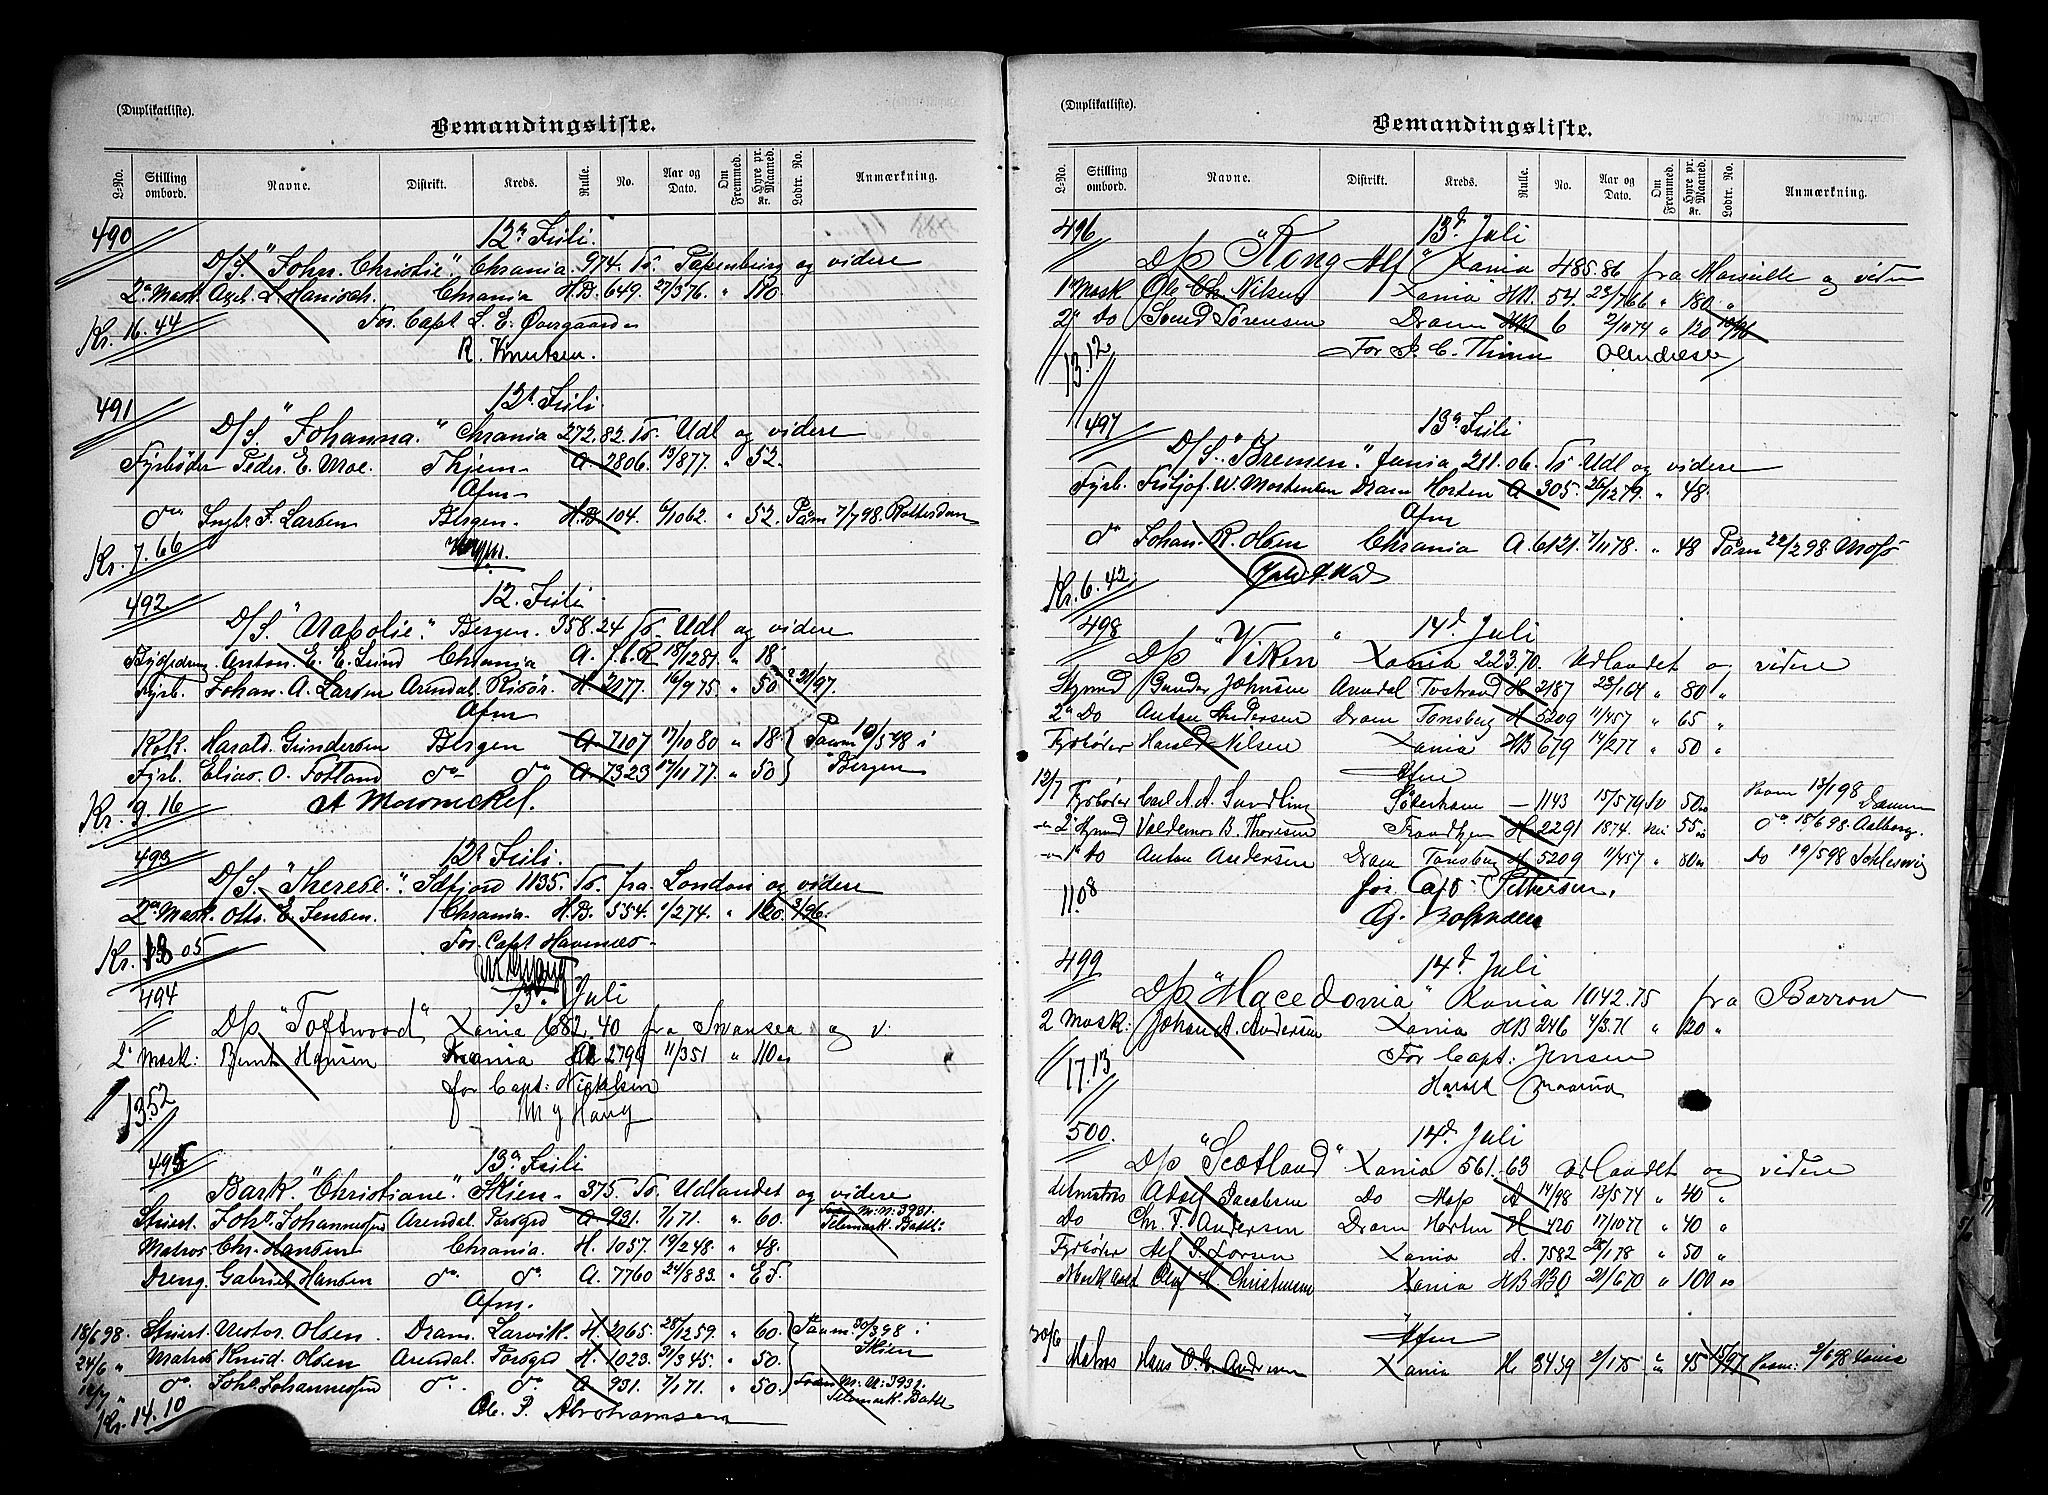 (Duplikatliste).
Bemandingsliste.
L-No. Stilling ombord. Navne. Distrikt. Kreds. Rulle. No. Aar og Dato. Om Fremmed. Hyre pr. Maaned. Kr. Lodtr. No. Anmærkning.
490 12te Juli.
D/S. "John Christie". Chrania. 974. To. Papenburg og videre
2den Mask. Axel. L. Hanisch. Chrania H.B. 649. 27/376. " 110
Kr. 16.44 For Capt L. E. Overgaard
R. Knutsen.
491 12te Juli.
D/S. "Johanna." Chrania 272.82. To. Udl og videre
Fyrbøder Peder. E. Moe. Thjem A. 2806. 13/877. " 52.
Afm
do Ingbr. F. Larsen Bergen. H.B. 104. 6/1062. " 52. Paam 7/798. Rotterdam
Kr. 7.66
492 12. Juli.
D/S. "Napolie." Bergen. 358.24 To. Udl og videre
Anton. E. E. Lund Chrania A. 18/1281. " 18
Fyrb. Johan. A. Larsen Arendal. Risør. H. 2077. 16/975. " 50 21/97.
Afm
Kok. Harald. Gundersen Bergen A. 7107 17/1080 " 18. Paam 10/598 i
Fyrb. Elias. O. Fotland do do A. 7323 17/1177. " 50 Bergen
Kr. 9.16 A Mowinckel.
493 12te Juli.
D/S. "Therese". 1135. To. fra London og videre
2den Mask. Otto. E. Jensen. Chrania. H.B. 554. 1/274. " 120. 3/96.
Kr. 18 05 For Capt Havnæs
494 13. Juli
D/s "Toftwood" Xania 682.40 fra Swansea og v.
2 Mask: Bernt Hansen Xania 2799 11/351 " 110
13.52 for Capt: Nickelsen
M g Haug
495 13de Juli
Bark. "Christiane". Skien 375. To. Udlandet og videre
Stuert. Johs. Johannesen Arendal. Porsgrd A. 931. 7/171. " 60. M: N: 3931.
Telemark. Batl:
Matros Chr. Hansen Chrania. H. 1057. 19/248. " 48.
Dreng. Gabriel Hansen do. do. A. 7760 24/883. " E F.
Afm.
18/6 98. Stuert. Nestor. Olsen. Dram. Larvik. H. 2165. 28/1259. " 60. Paam. 30/398 i
24/6 " Matros Knud. Olsen Arendal. Porsgrd H. 1023. 31/345. " 50. Skien
12/7 " do Johs. Johannesen do. do. A. 931. 7/171. " 50. M: N: 3931.
Kr. 14.10 Telemark. Batl
Ole. P. Abrahamsen
(Duplikatliste).
Bemandingsliste.
L-No. Stilling ombord. Navne. Distrikt. Kreds. Rulle. No. Aar og Dato. Om Fremmed. Hyre pr. Maaned. Kr. Lodtr. No. Anmærkning.
496 13d Juli
D/s "Kong Alf" Xania 485.86 fra Marseille og videre
1ste Mask Ole Ch Nilsen Xania HB 54. 23/766 " 180 "
2 Do Svend Sørensen Dram HB 6 2/1074 " 120 10/96
13.12 For J. C. Thinn
497 13de Juli
D/S. "Bremen." 211.06. To Udl og videre
Fyrb. Fritjof. W. Mortensen Dram Horten A 305. 26/1279. " 48.
Afm
do Johan. R. Olsen Chrania A. 6121. 7/1178. " 48 Paam 22/298. Moss
Kr. 6.42
498 14d Juli
D/s "Viken" Xania 223.70. Udlandet og videre
Styrmd Gunder Johnsen Arendal Tvestrand H 2187 23/164 " 80 "
2den Do Anton Andersen Dram Tønsberg H 5209 11/457 " 65 "
Fyrbøder Harald Nilsen Xania HB 679 14/277 " 50 "
Afm
12/7 Fyrbøder Carl A. A. Sundling Søderham — 1143 15/579 Sv 50 Paam 13/198 Drammen
2 Styrmd Valdemar B. Thoresen Trondhjem H 2291 1874. Nei 55 do 18/698. Aalborg.
1ste Do Anton Andersen Dram Tønsberg H 5209 11/457 " 80 Do 19/598 Schleswig
11.08 for Capt Pettersen,
499 14d Juli
D/s "Macedonia" Xania 1042.75 fra Barrow
2 Mask: Johan A. Andersen Xania HB 246 4/371 " 120 "
17.13 For Capt: Jensen
Harald
500. 14d Juli
D/s "Scotland" Xania 561.63 Udlandet og videre
Letmatros Adolf Jacobsen Do Moss A 14/98 13/574 " 40 "
Do Chr. F. Andersen Dram Horten H 420 17/1077 " 40 "
Fyrbøder Alf S. Larsen Xania A. 7582 28/178 " 50 "
Mask Olaf H. Christensen Xania HB 230 21/670 " 100
Afm
30/6 Matros Hans O. G. Andersen Xania H 3459 2/175 " 45 15/97 Paam: 2/698 Xania